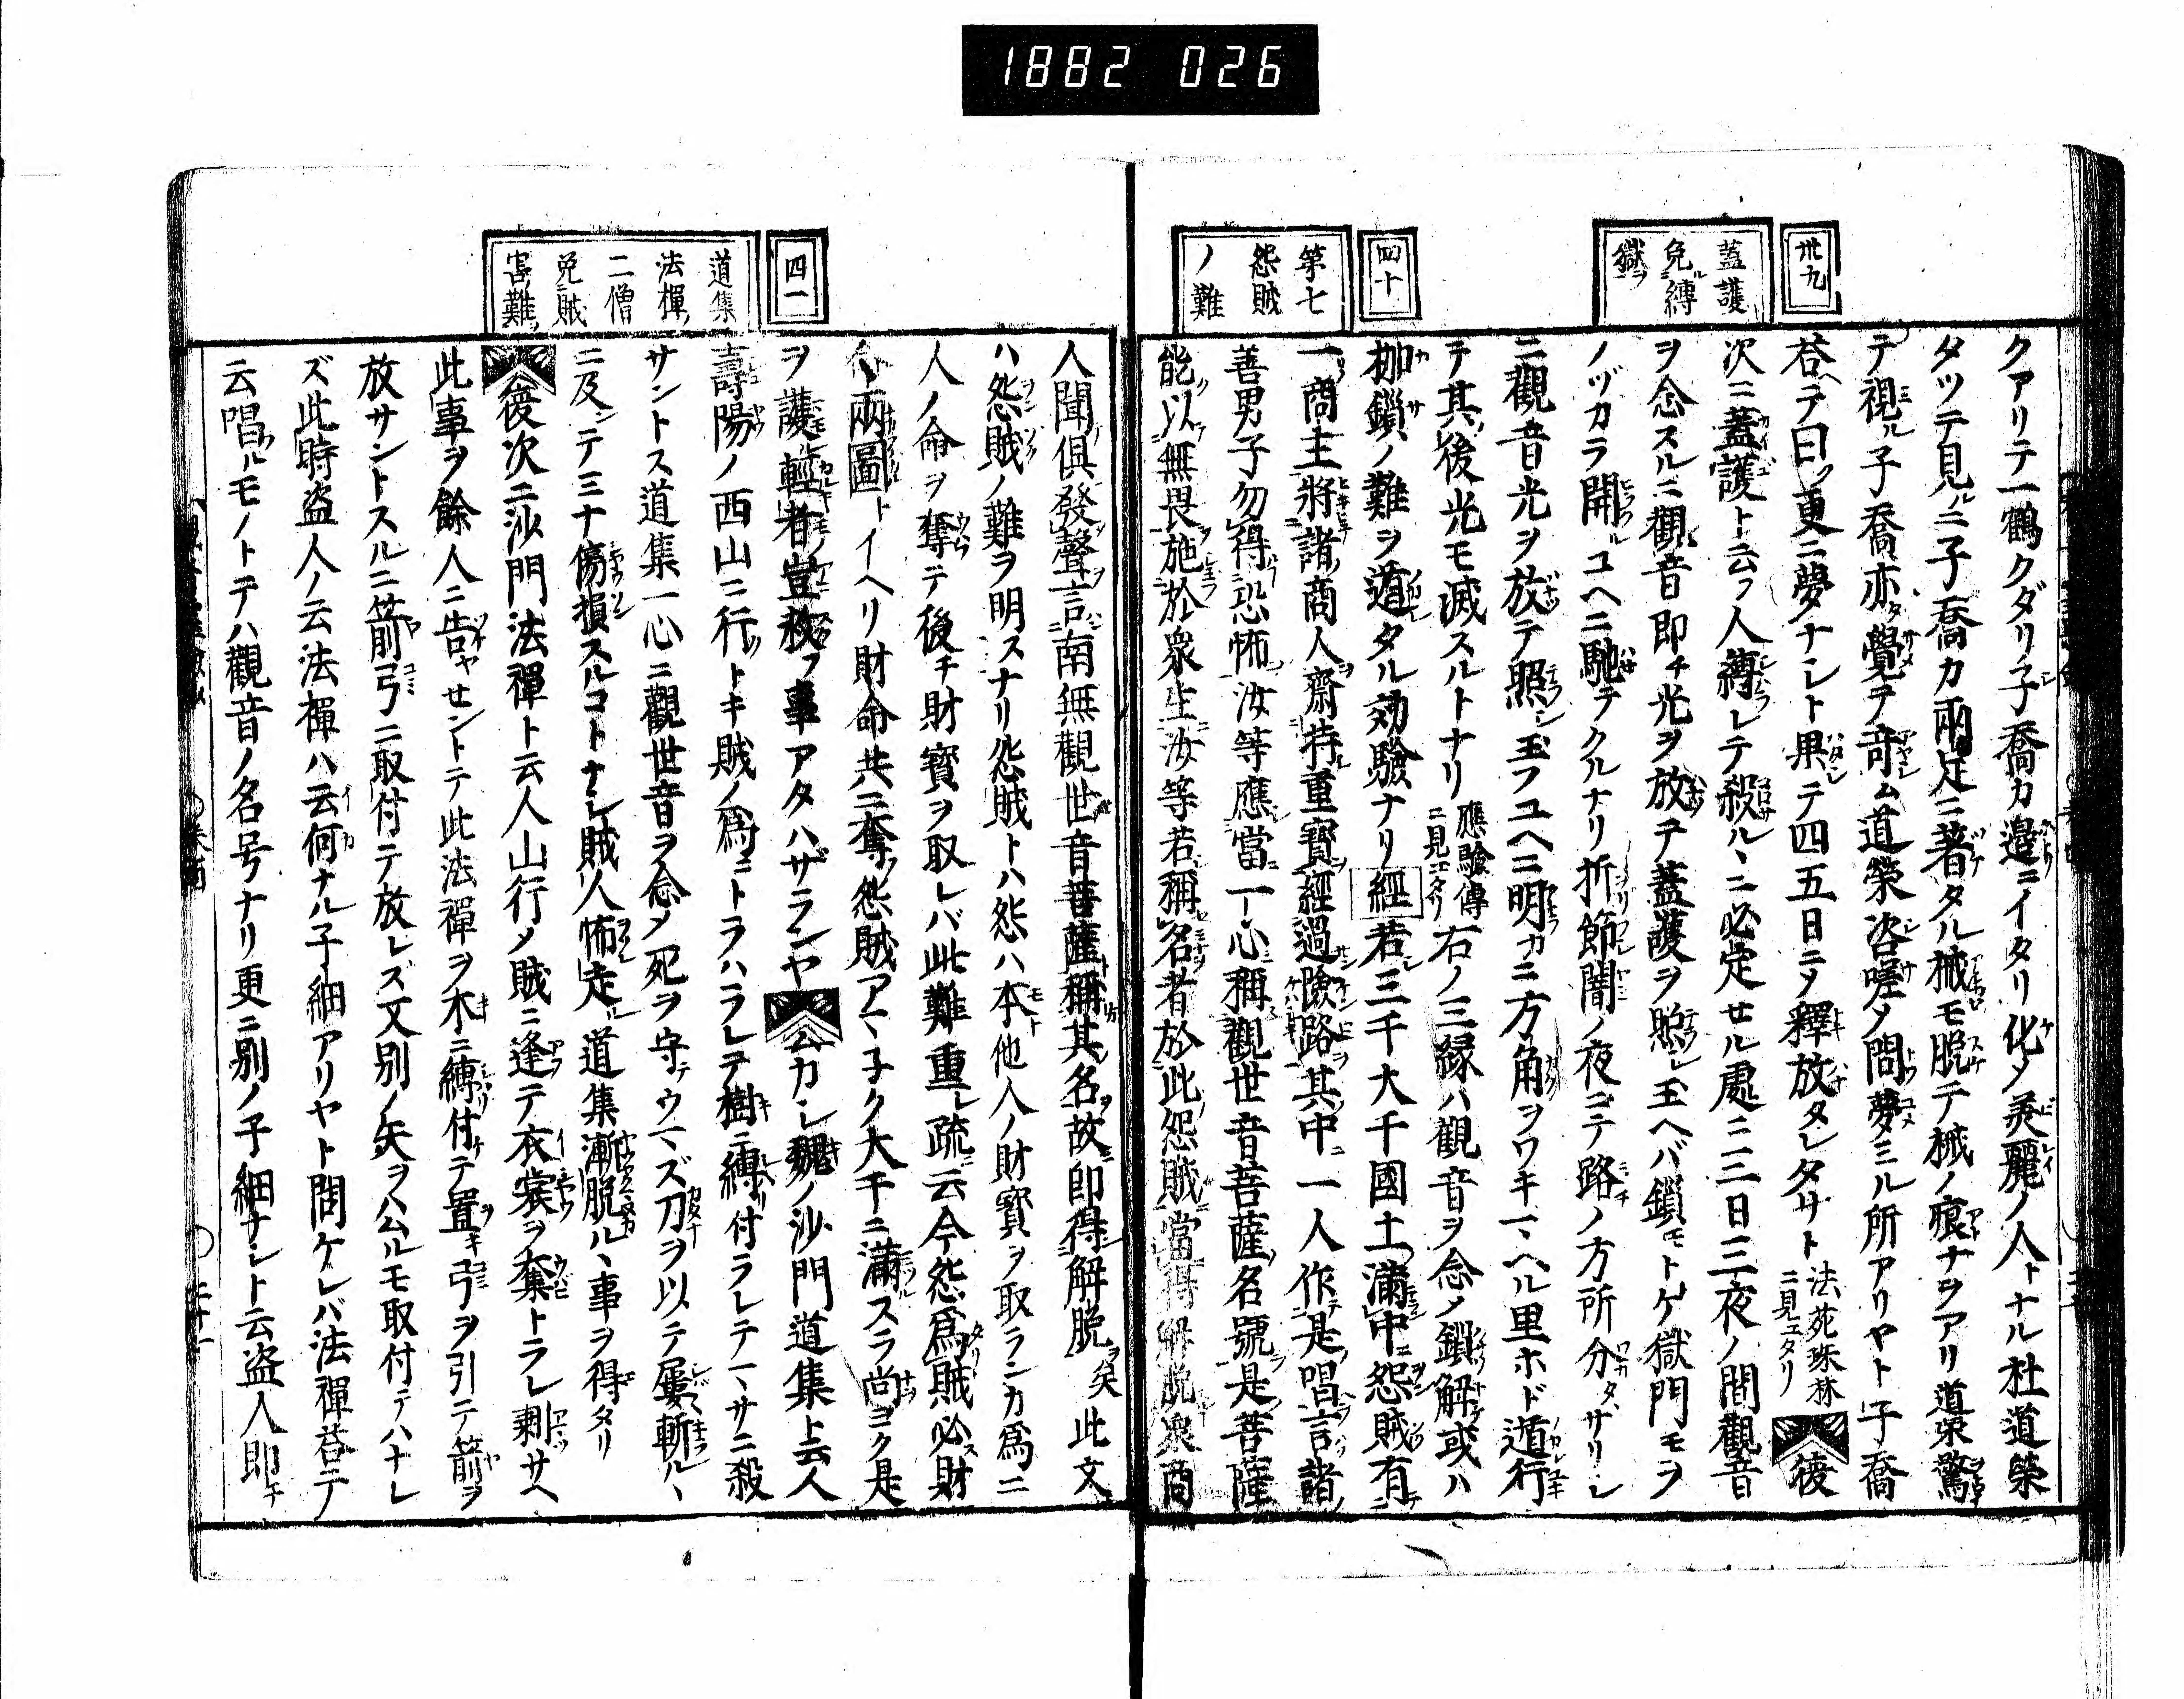 1882 026
卅九
蓋護
免ルヽ縛
獄ヲ
四十
第七
怨賊
ノ難
クアリテ一鶴クダリ子喬カ邉ニイタリ化〆美麗ノ人トナル杜道榮
タツテ見ルニ子喬カ兩足ニ著タル械モ脱テ械ノ痕ナヲアリ道栄驚
テ視ル子喬亦覺テ竒ム道榮咨嗟〆問夢ミル所アリヤト子喬
荅テ曰ク更ニ夢ナシト果テ四五日ニ〆釋放タレタサト法苑珠林ニ見エタリ 後
次ニ蓋護ト云フ人縛レテ殺ルヽニ必定セル處ニ三日三夜ノ間觀音
ヲ念スルニ觀音即チ光ヲ放チ蓋護ヲ照シ玉ヘバ鎖モトケ獄門モヲ
ノヅカラ開ルユヘニ馳テクルナリ折節闇ノ夜ニテ路ノ方所分タザリシ
ニ觀音光ヲ放テ照シ玉フユヘニ明カニ方角ヲワキマヘル里ホド遁行
テ其後光モ滅スルトナリ應驗傳ニ見エタリ右ノ三縁ハ觀音ヲ念〆鎖解或ハ
枷鎖ノ難ヲ遁タル効驗ナリ經若三千大千國土滿中怨賊有
一商主將諸商人齋持重寳經過險路其中一人作是唱言諸
善男子勿得恐怖汝等應當一心稱觀世音菩薩名號是菩薩
能以無畏施於衆生汝等若稱名者於此怨賊當得解脱衆商
四一
道集
法禪
二僧
免賊
害難
人聞俱發聲言南無觀世音菩薩稱其名故即得解脱矣此文
ハ怨賊ノ難ヲ明スナリ怨賊トハ怨ハ本他人ノ財寳ヲ取ランカ爲ニ
人ノ命ヲ奪テ後チ財寳ヲ取レバ此難重シ疏云今怨爲賊必財
命兩圖トイヘリ財命共ニ奪怨賊アマ子ク大千ニ滿スラ尚ヨク是
ヲ護輕者豈救フ事アタハザランヤ 云カシ魏ノ沙門道集ト云人
壽陽ノ西山ニ行トキ賊ノ爲ニトラハラレテ樹ニ縛付ラレテマサニ殺
サントス道集一心ニ觀世音ヲ念〆死ヲ守テウマズ刀ヲ以テ屢斬ルヽ
ニ及ンテミナ傷損スルコトナシ賊人怖走ル道集漸脱ルヽ事ヲ得タリ
後次ニ沙門法禪ト云人山行〆賊ニ逢テ衣裳ヲ奪トラレ剩サヘ
此事ヲ餘人ニ告ヤセントテ此法禪ヲ木ニ縛付テ置キ弓ヲ引テ箭ヲ
放サントスルニ箭弓ニ取付テ放レズ又別ノ矢ヲハムルモ取付テハナレ
ズ此時盗人ノ云法禪ハ云何ナル子細アリヤト問ケレバ法禪荅テ
云唱ルモノトテハ觀音ノ名号ナリ更ニ別ノ子細ナシト云盗人即チ